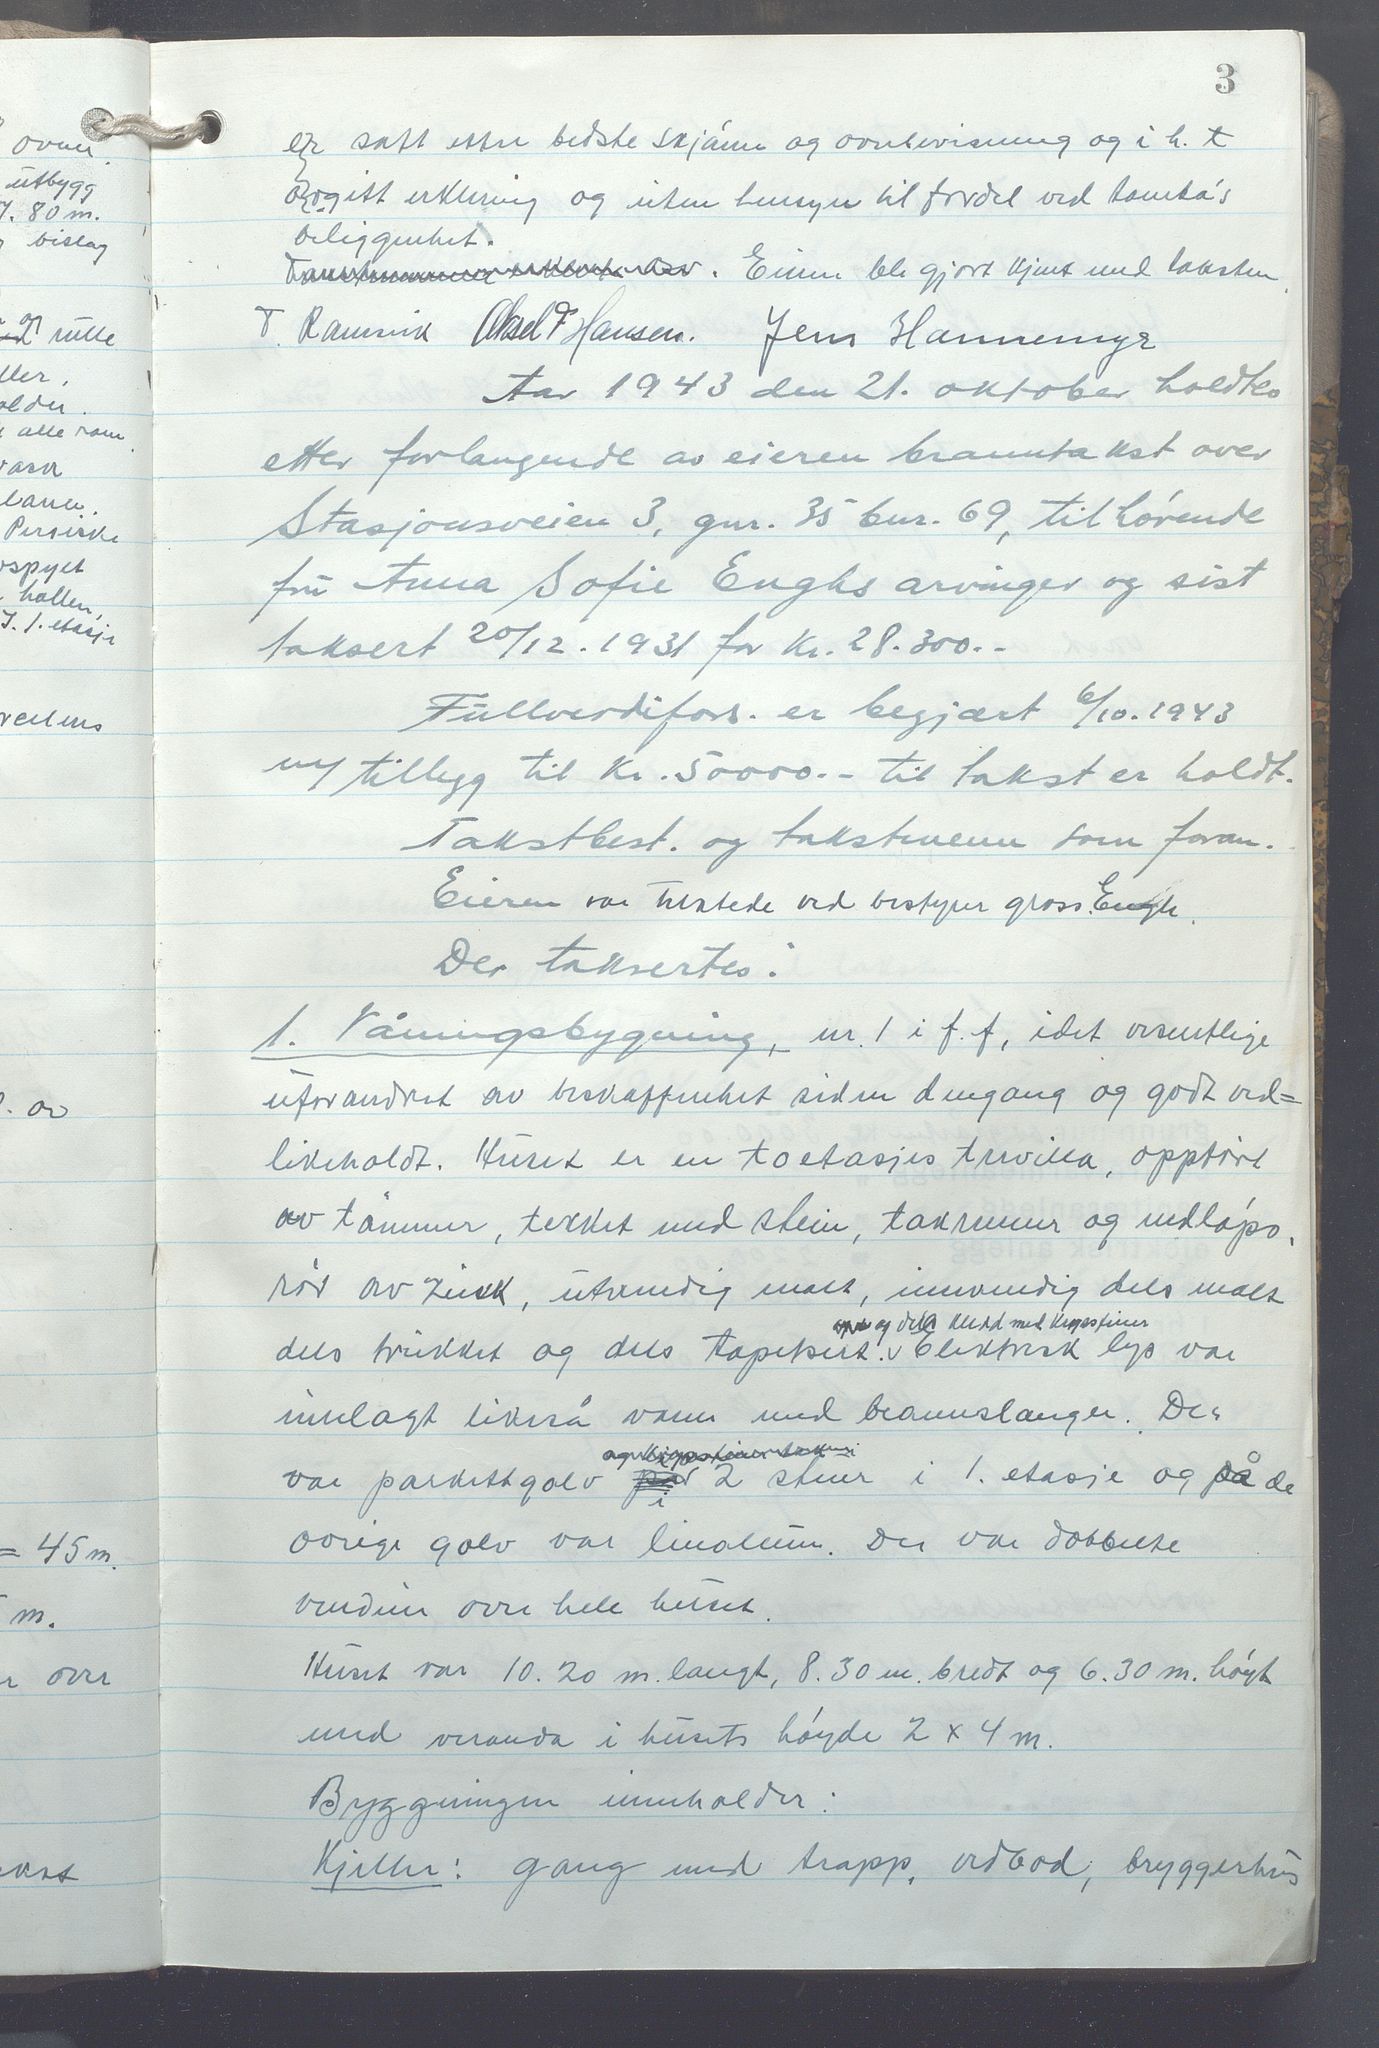 3
er satt etter bedste skjønn og overbevisning og i h. t
avgitt erklæring og uten hensyn til fordel ved tomta's
beliggenhet.
Eieren ble gjort kjent med taksten.
T. Ramsvik Aksel F Hansen. Jens Hannemyr
Aar 1943 den 21. oktober holdtes
etter forlangende av eieren branntakst over
Stasjonsveien 3, gnr. 35 bnr. 69, tilhørende
fru Anna Sofie Enghs arvinger og sist
taksert 20/12. 1931 for Kr. 28.300.-
Fullverdifors. er begjært 6/10. 1943
m/ tillegg til Kr. 50000.- til takst er holdt.
Takstbest. og takstmenn som foran.
Eieren var tilstede ved bestyrer gross. Engh.
Der taksertes:
1. Våningsbygning, nr. 1 i f. f, i det vesentlige
uforandret av beskaffenhet siden dengang og godt ved=
likeholdt. Huset er en toetasjes trevilla, oppført
av tømmer, tekket med stein, takrenner og nedløps.
rør av zink, utvendig malt, innvendig dels malt
og dels kledd med kryssfiner
dels trukket og dels tapetsert. v Elektrisk lys var
innlagt likeså vann med brannslanger. Der
var parkettgolv i 2 stuer i 1. etasje og på de
øvrige golv var linoleum. Der var dobbelte
vinduer over hele huset.
Huset var 10.20 m. langt, 8.30 m. bredt og 6.30 m. høyt
med veranda i husets høyde 2 x 4 m.
Byggningen inneholder:
Kjeller: gang med trapp, vedbod, bryggerhus
ovner.
utbygg
80 m.
bislag
rulle
alle rom
Persiske
hallen,
1. etasje
av
= 45 m.
m.
over